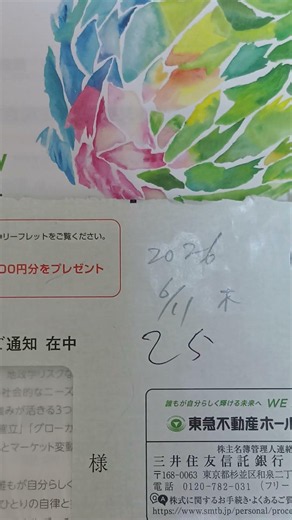 リーフレットをご覧ください。
00円分をプレゼント
2026
6/11 木
25
ご通知 在中
様
誰もが自分らしく輝ける未来へ WE
東急不動産ホール
株主名簿管理人連絡
三井住友信託銀行
〒168-0063 東京都杉並区和泉二丁
電話 0120-782-031 (フリー
株式に関するお手続き・よくあるご質
https://www.smtb.jp/personal/proce
社会的なニーズ
みが活きる3つ
産立」「グローカ
とマーケット変動
誰もが自分らし
ひとりの自律と